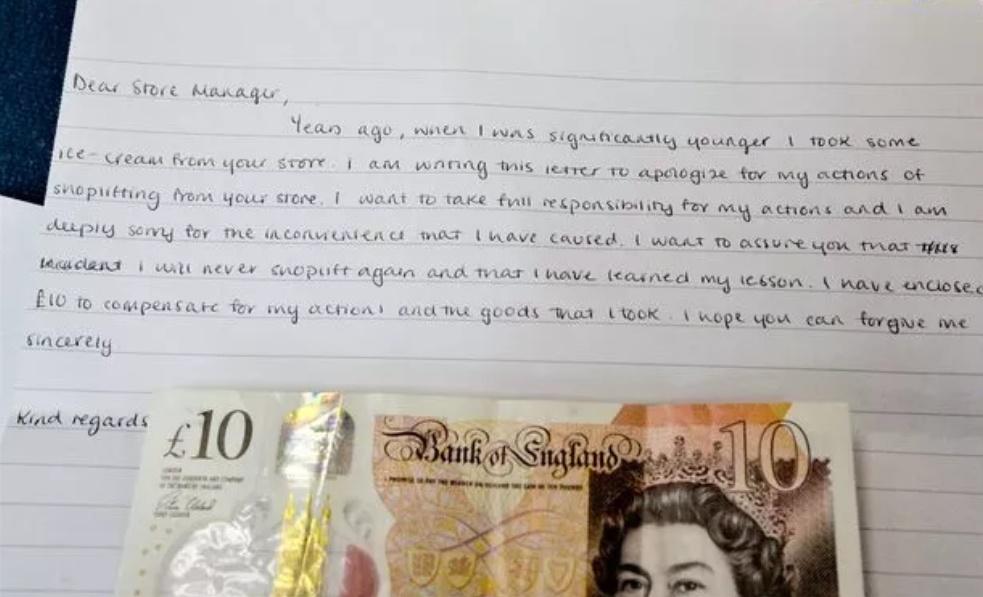 Dear Store Manager,
Years ago, when I was significantly younger I took some
ice-cream from your store. I am writing this letter to apologize for my actions of
shoplifting from your store. I want to take full responsibility for my actions and I am
deeply sorry for the inconvenience that I have caused. I want to assure you that this
incident I will never shoplift again and that I have learned my lesson. I have enclosed
£10 to compensate for my actions and the goods that I took. I hope you can forgive me
sincerely
Kind regards
£10
Bank of England
10
I PROMISE TO PAY THE BEARER ON DEMAND THE SUM OF TEN POUNDS
LONDON
FOR THE GOVERNOR AND COMPANY
OF THE BANK OF ENGLAND